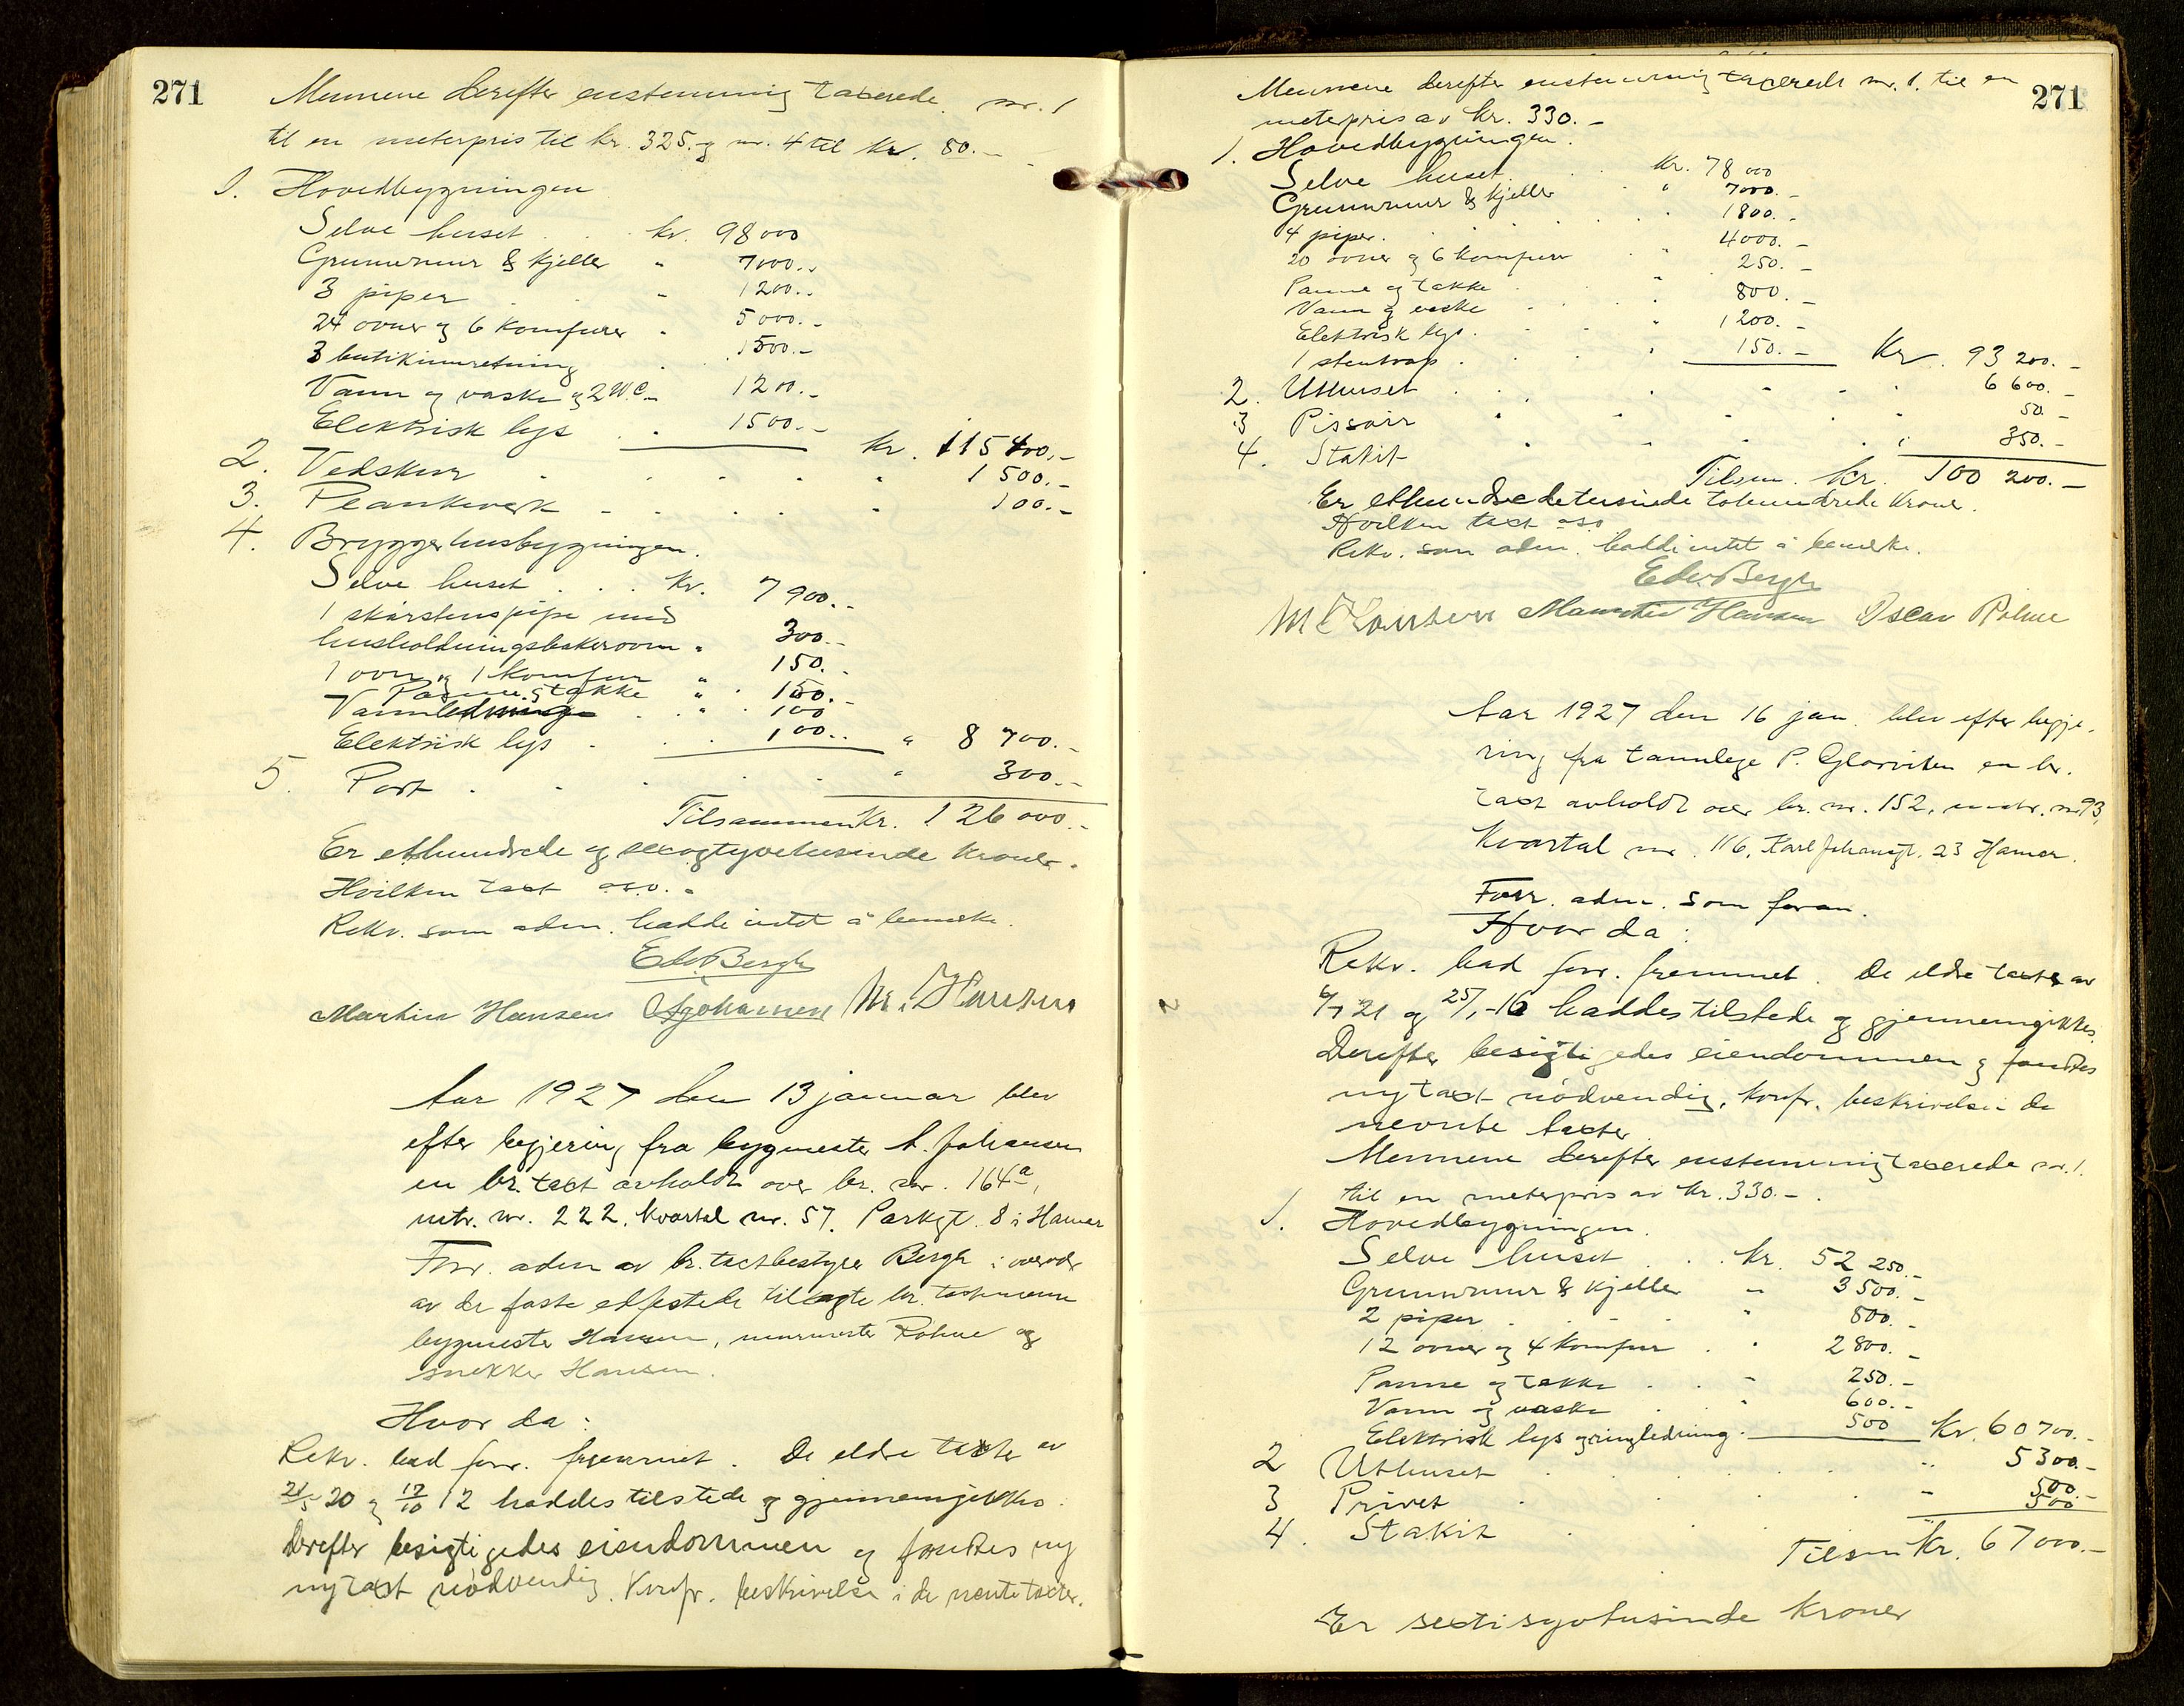 271
Mennene derefter enstemmig taxerede nr. 1
til en meterpris til kr. 325.- og nr. 4 til kr. 80.-
1. Hovedbygningen
Selve huset . . kr. 98 000
Grunnmur & kjeller " 7000.-
3 piper . . " 1200.-
24 ovner og 6 komfurer " 5000.-
3 butikinnretning . 1500.-
Vann og vaske og 2 W.C. 1200.-
Elektrisk lys . . 1500.- kr. 115400.-
2. Vedskur . . . . " 1500.-
3. Plankverk - . . . " 100.-
4. Bryggerhusbygningen.
Selve huset . . . kr. 7900.-
1 skorstenspipe med
husholdningsbakerovn " 300.-
1 ovn og 1 komfur " 150.-
Panne og takke " 150.-
Vannledning . . " 100
Elektrisk lys . . . 100.- " 8700.-
5. Port . . . . " 300.-
Tilsammen kr. 126000.-
Er ethundrede og sexogtyvetusinde kroner.
Hvilken taxt o.s.v.
Rekv. som adm. hadde intet å bemerke.
Edv. Bergh
Martin Hansen A Johansen M. Hansen
Aar 1927 den 13 januar blev
efter begjering fra bygmester A. Johansen
en br. taxt avholdt over br. nr. 164a,
matr. nr. 222, kvartal nr. 57. Parkgt. 8 i Hamar
Forr. adm av br. taxtbestyrer Bergh i overvær
av de faste edfestede tillagte br. taxtmenn
bygmester Hansen, murmester Røhne og
snekker Hansen.
Hvor da:
Rekv. bad forr. fremmet. De eldre taxter av
21/5 20 og 17/10 12 haddes tilstede og gjennemgikkes.
Derefter besigtigedes eiendommen og fandtes ny
ny taxt nödvendig. Konfr. beskrivelse i de nevnte taxter.
271
Mennene derefter enstemmig taxerede nr. 1. til en
meterpris av kr. 330.-
1. Hovedbygningen.
Selve huset . . kr. 78 000
Grunnmur & kjeller " 7000.-
4 piper . . . . 1800.-
20 ovner og 6 komfurer " 4000.-
Panne og takke . " 250.-
Vann og vaske . . " 800.-
Elektrisk lys . . . " 1200.-
1 stentrap . . . " 150.- Kr. 93 200.-
2. Uthuset . . . . . . 6600.-
3 Pissoir . . . . . 50.-
4. Stakit . . . . . 350.-
Tilsm. kr. 100 200.-
Er ethundredetusinde tohundrede kroner.
Hvilken taxt o.s.v
Rekv. som adm. hadde intet å bemerke.
Edv. Bergh
M. Hansen Martin Hansen Oscar Röhne
Aar 1927 den 16 jan. blev efter begje-
ring fra tannlege P. Glorviken en br.
taxt avholdt over br. nr. 152, matr. nr 93,
Kvartal nr. 116, Karl Johansgt. 23 Hamar.
Forr. adm. som foran.
Hvor da:
Rekv. bad forr. fremmet. De eldre taxter av
6/7 21 og 25/1-16 haddes tilstede og gjennemgikkes.
Derefter besigtigedes eiendommen og fandtes
ny taxt nödvendig, konfr. beskrivelse i de
nevnte taxter.
Mennene derefter enstemmig taxerede nr. 1.
til en meterpris av kr. 330.-.
1. Hovedbygningen.
Selve huset . . kr. 52 250.-
Grunnmur & kjeller " 3500.-
2 piper . . . " 800.-
12 ovner og 4 komfur . " 2800.-
Panne og takke . . " 250.-
Vann og vaske . . " 600.-
Elektrisk lys og ringledning . 500 Kr. 60700.-
2 Uthuset . . . . " 5300.-
3 Privet . . . . " 500.-
4. Stakit . . . . 500
Tilsm kr. 67000.-
Er sextisyvtusinde kroner